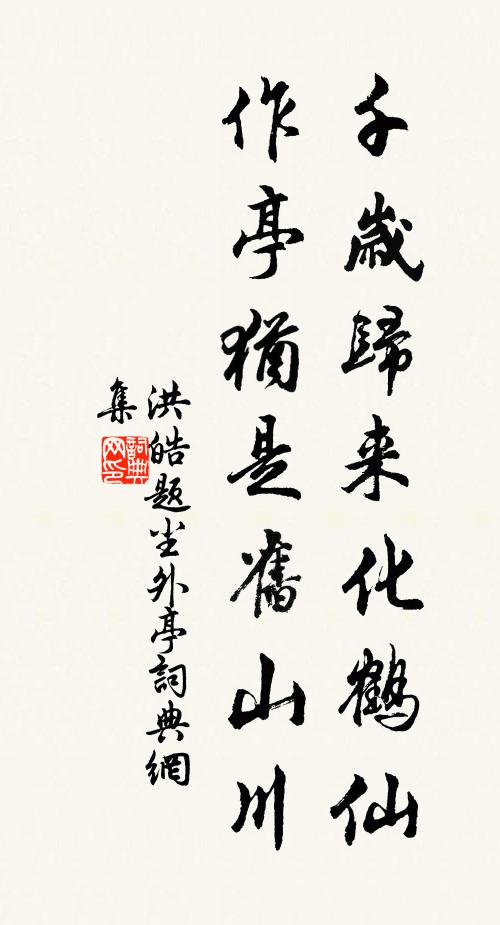 千歲歸来化鶴仙
作亭猶是舊山川
洪皓题尘外亭詞典網
集
詞典
网印